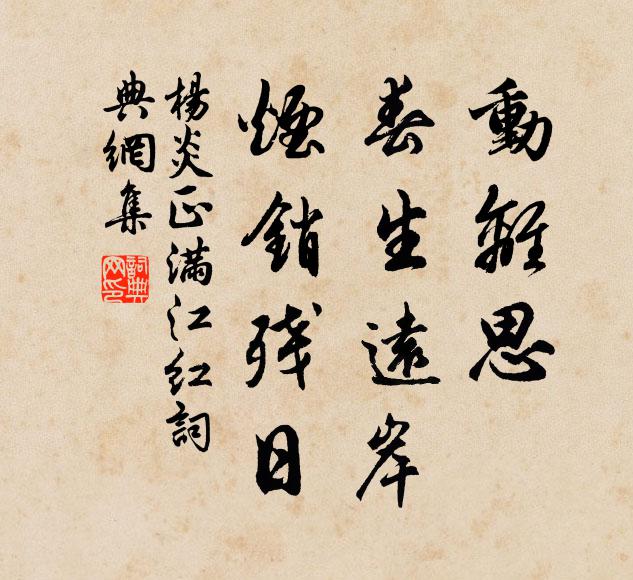 動離思
春生遠岸
煙銷残日
楊炎正滿江紅詞
典網集
詞典
网印